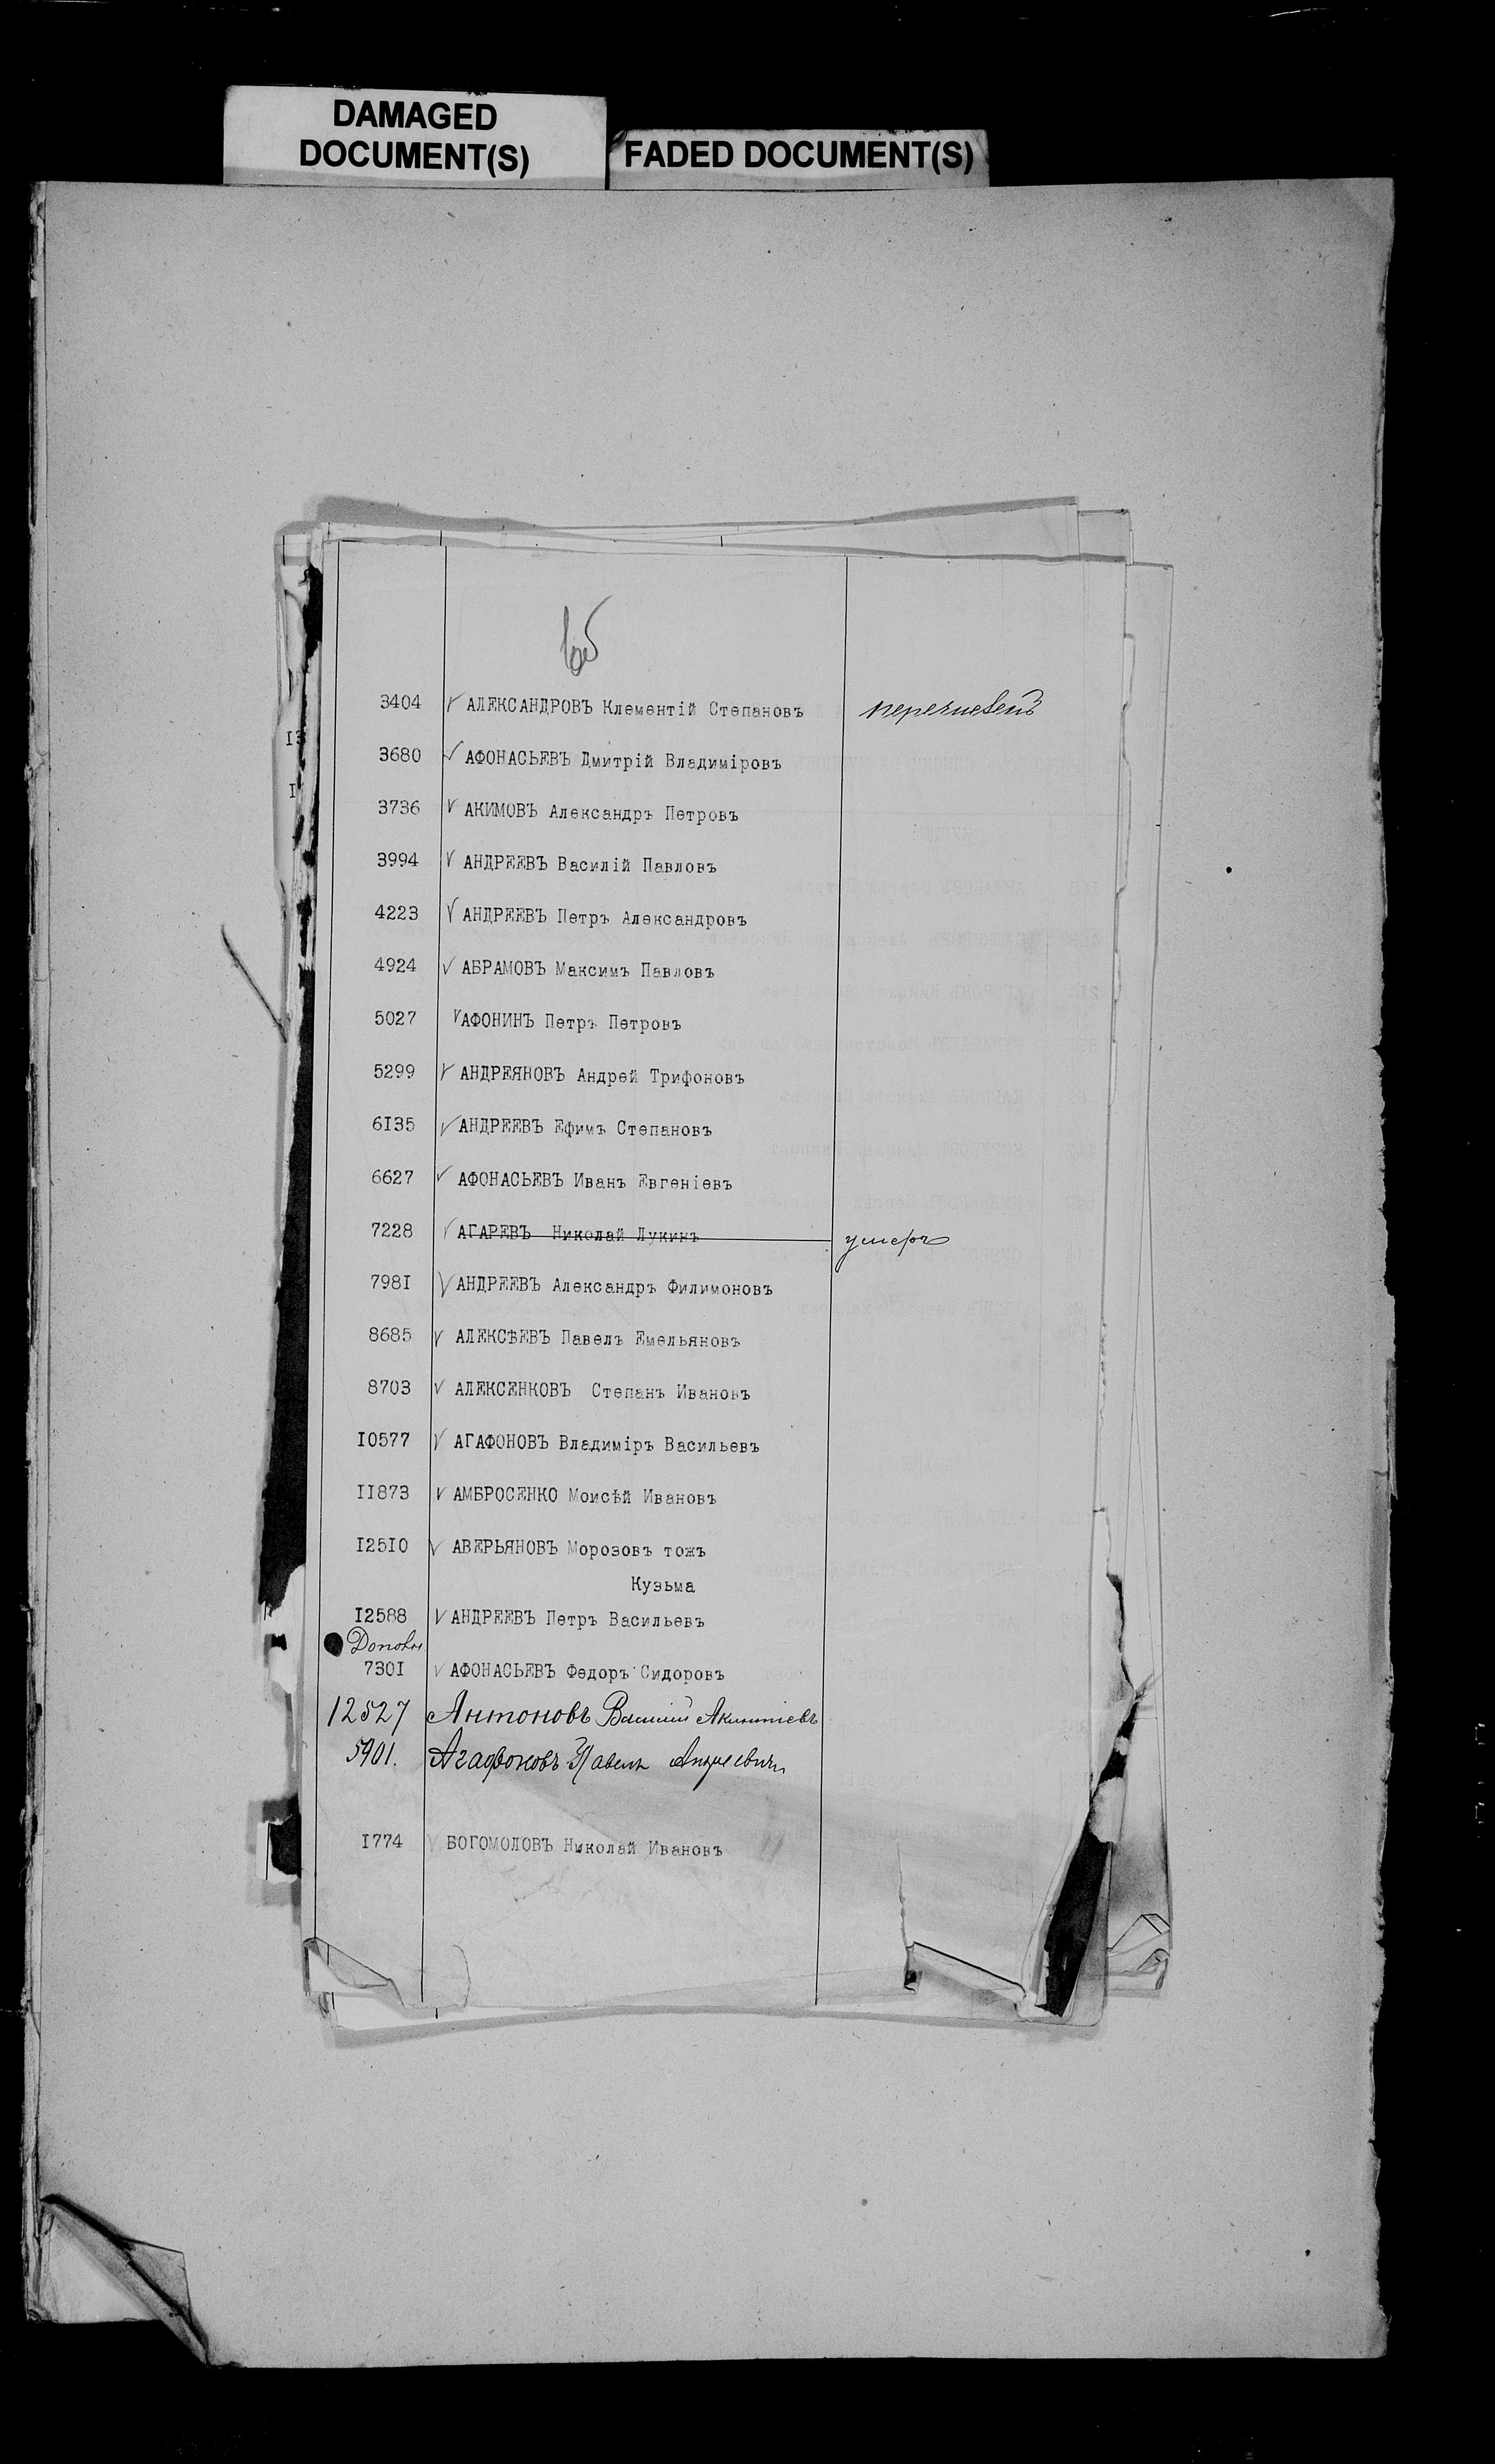 DAMAGED
DOCUMENT(S)
FADED DOCUMENT(S)
3404 АЛЕКСАНДРОВЪ Клементій Степановъ
3680 АФОНАСЬЕВЪ Дмитрій Владиміровъ
3736 АКИМОВЪ Александръ Петровъ
3994 АНДРЕЕВЪ Василій Павловъ
4223 АНДРЕЕВЪ Петръ Александровъ
4924 АБРАМОВЪ Максимъ Павловъ
5027 АФОНИНЪ Петръ Петровъ
5299 АНДРЕЯНОВЪ Андрей Трифоновъ
6I35 АНДРЕЕВЪ Ефимъ Степановъ
6627 АФОНАСЬЕВЪ Иванъ Евгеніевъ
7228 АГАРЕВЪ Николай Лукинъ умеръ
798I АНДРЕЕВЪ Александръ Филимоновъ
8685 АЛЕКСѢЕВЪ Павелъ Емельяновъ
8703 АЛЕКСЕНКОВЪ Степанъ Ивановъ
I0577 АГАФОНОВЪ Владиміръ Васильевъ
II873 АМБРОСЕНКО Моисѣй Ивановъ
I25I0 АВЕРЬЯНОВЪ Морозовъ тожъ
Кузьма
I2588 АНДРЕЕВЪ Петръ Васильевъ
730I АФОНАСЬЕВЪ Федоръ Сидоровъ
12527 Антоновъ Василий Акинтіевъ
5901. Агафоновъ Павелъ
I774 БОГОМОЛОВЪ Николай Ивановъ